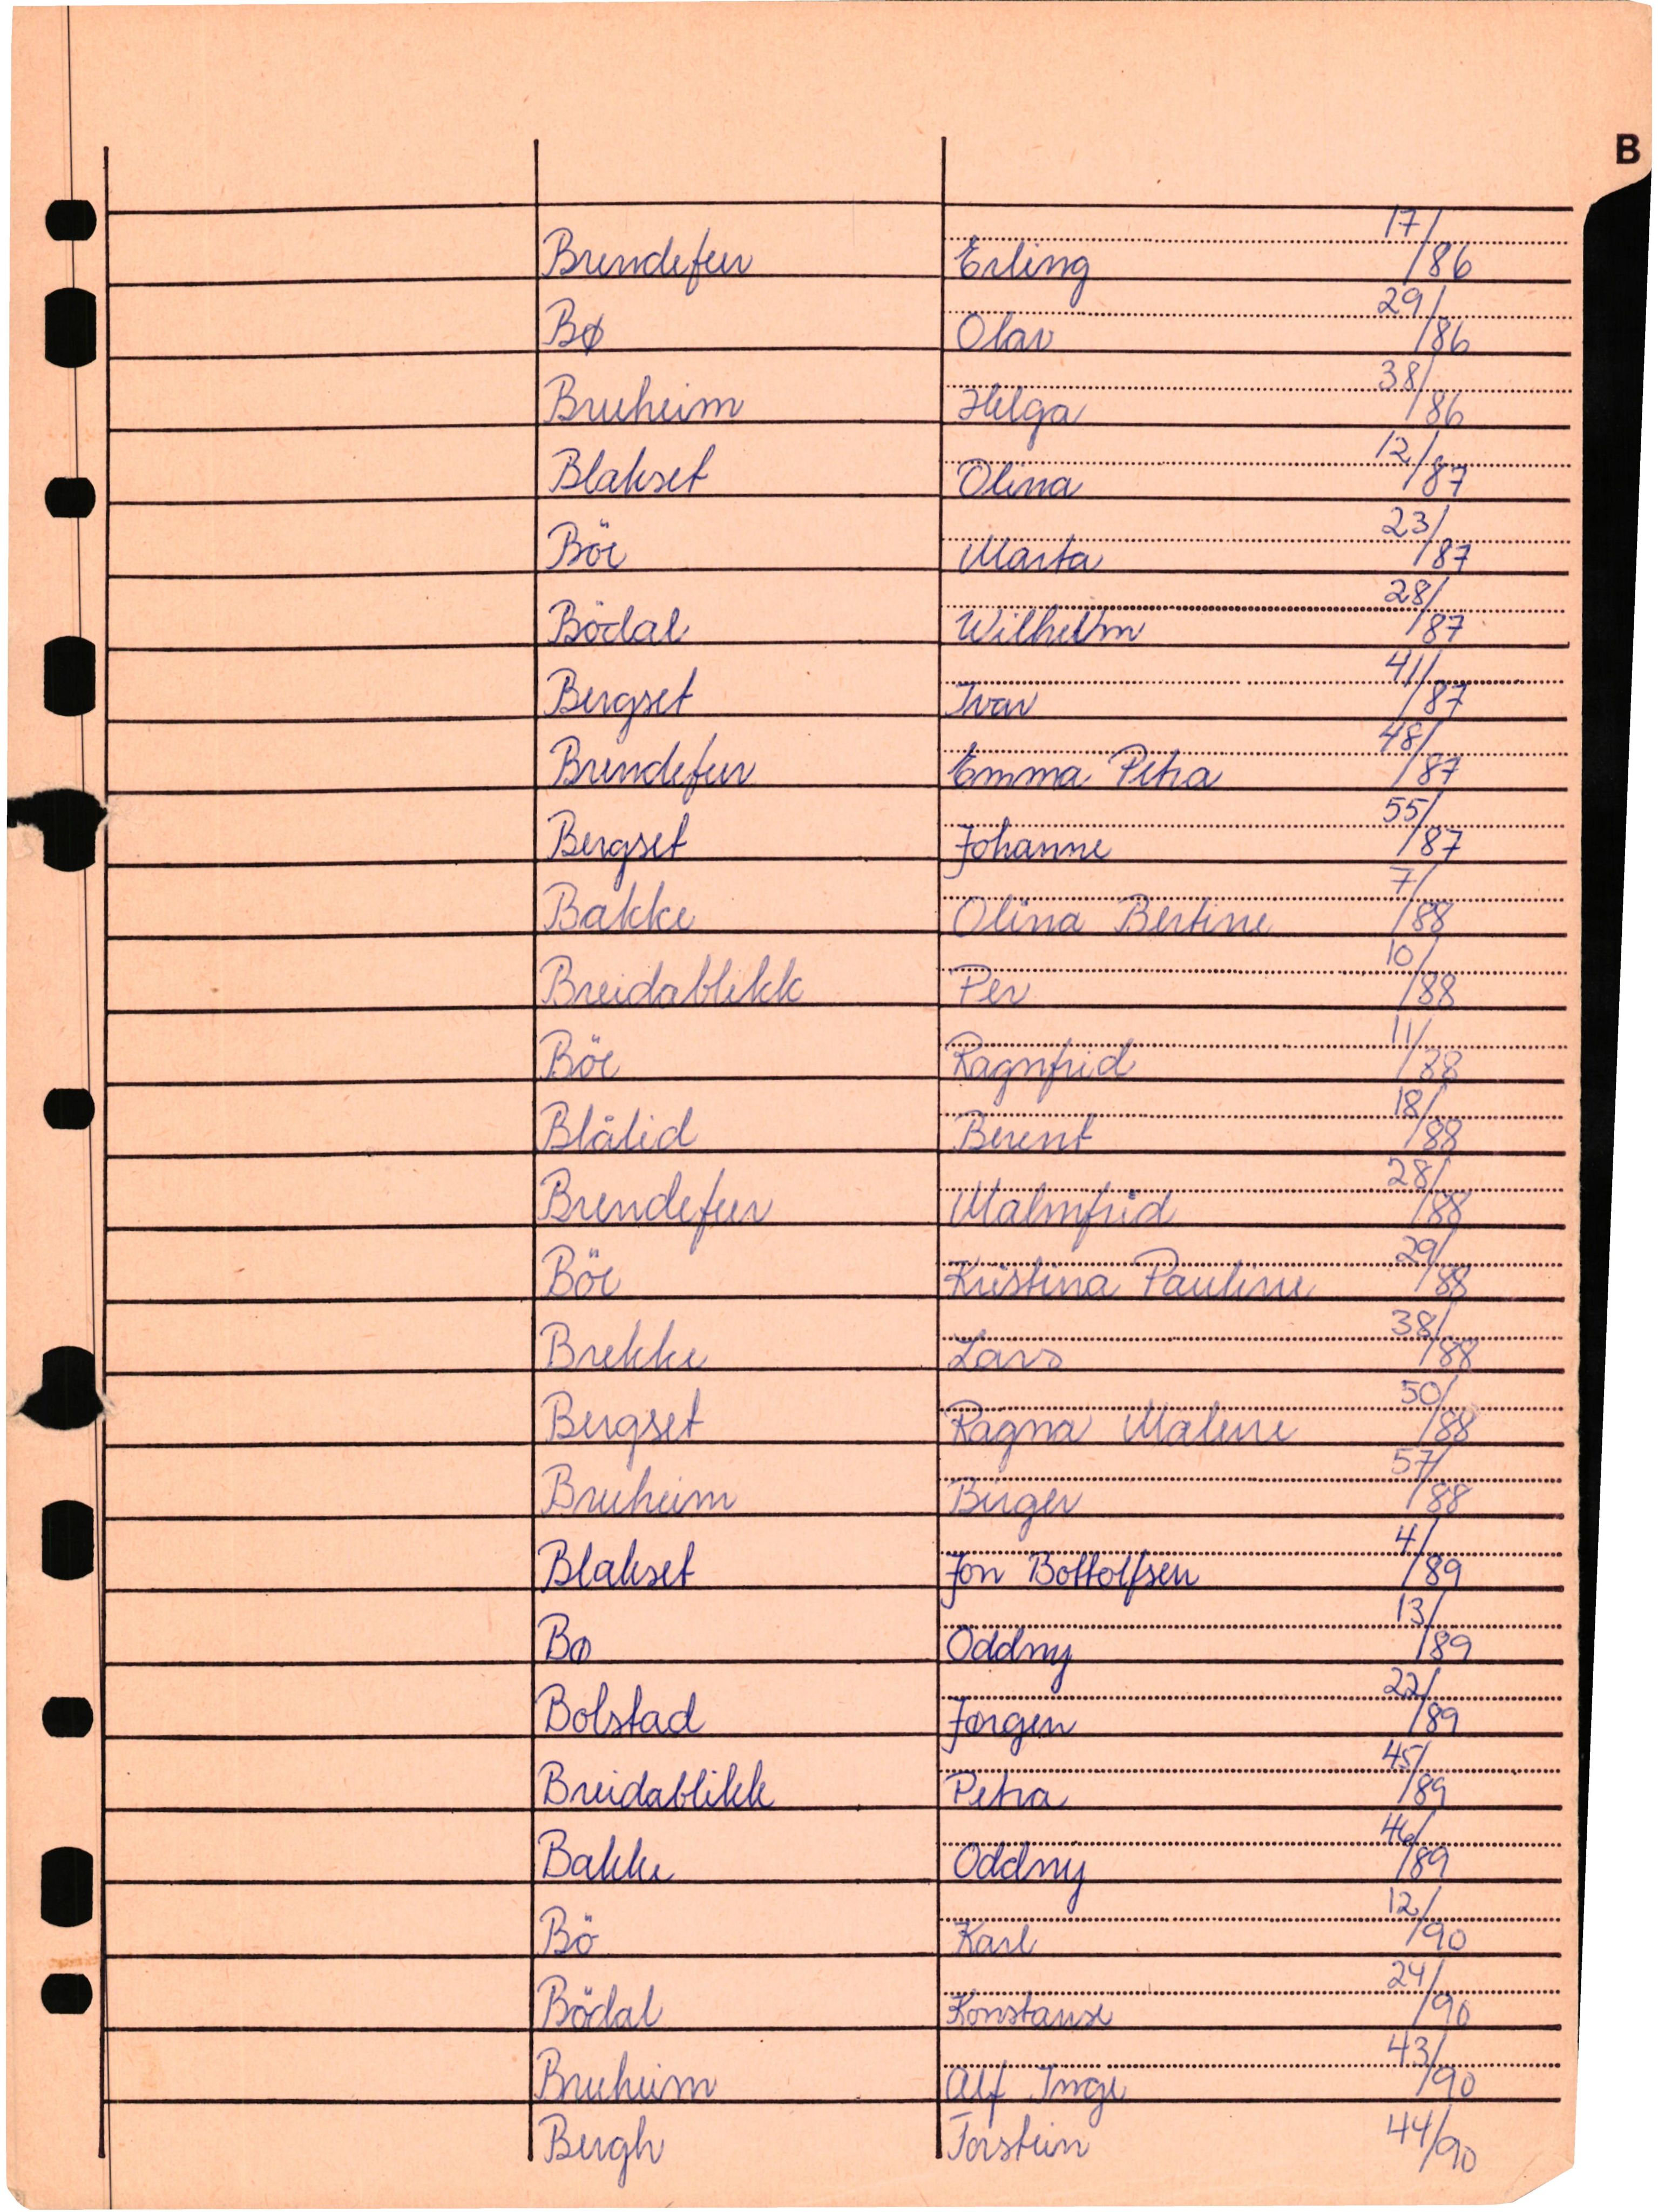 B
Brendefur Erling 17/86
Bø Olav 29/86
Bruheim Helga 38/86
Blakset Olina 12/87
Böe Marta 23/87
Bödal Wilhelm 28/87
Bergset Ivar 41/87
Brendefur Emma Petra 48/87
Bergset Johanne 55/87
Bakke Olina Bertine 7/88
Breidablikk Per 10/88
Böe Ragnfrid 11/88
Blålid Berent 18/88
Brendefur Malmfrid 28/88
Böe Kristina Pauline 29/88
Brekke Lars 38/88
Bergset Ragna Malene 50/88
Bruheim Birger 57/88
Blakset Jon Bottolfsen 4/89
Bø Oddny 13/89
Bolstad Jørgen 22/89
Breidablikk Petra 45/89
Bakke Oddny 46/89
Bö Karl 12/90
Bödal Konstanse 24/90
Bruheim Alf Inge 43/90
Bergh Torstein 44/90